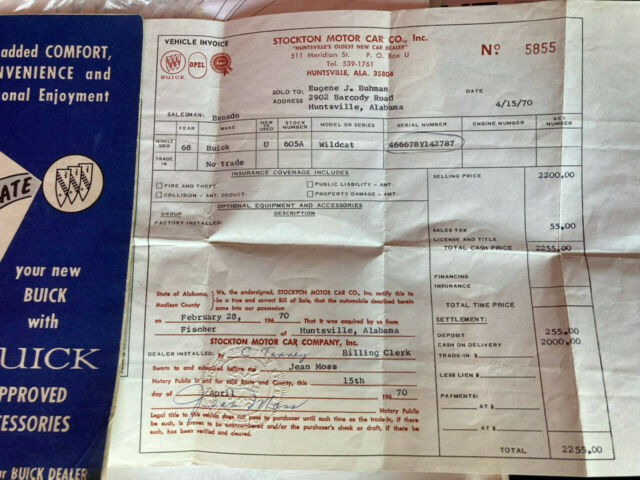 added COMFORT,
NVENIENCE and
onal Enjoyment
ATE
your new
BUICK
with
UICK
PPROVED
CESSORIES
ur BUICK DEALER
VEHICLE INVOICE
BUICK
OPEL
STOCKTON MOTOR CAR CO., Inc.
"HUNTSVILLE'S OLDEST NEW CAR DEALER"
511 Meridian St. P. O. Box U
Tel. 539-1761
HUNTSVILLE, ALA. 35804
No. 5855
SOLD TO: Eugene J. Buhman
ADDRESS 2902 Barcody Road
Huntsville, Alabama
DATE
4/15/70
SALESMAN: Benson
YEAR MAKE NEW OR USED STOCK NUMBER MODEL OR SERIES SERIAL NUMBER ENGINE NUMBER KEY NUMBER
VEHICLE SOLD 68 Buick U 605A Wildcat 466678Y142787
TRADE IN No trade
INSURANCE COVERAGE INCLUDES
FIRE AND THEFT PUBLIC LIABILITY - AMT.
COLLISION - AMT. DEDUCT. PROPERTY DAMAGE - AMT.
OPTIONAL EQUIPMENT AND ACCESSORIES
GROUP DESCRIPTION
FACTORY INSTALLED:
SELLING PRICE 2200.00
SALES TAX 55.00
LICENSE AND TITLE
TOTAL CASH PRICE 2255.00
FINANCING
INSURANCE
TOTAL TIME PRICE
SETTLEMENT:
DEPOSIT 255.00
CASH ON DELIVERY 2000.00
TRADE-IN $
LESS LIEN $
PAYMENTS:
AT $
AT $
TOTAL 2255.00
State of Alabama, We, the undersigned, STOCKTON MOTOR CAR CO., Inc. certify this to
Madison County be a true and correct Bill of Sale, that the automobile described herein
came into our possession
on February 28, 196 70 That it was acquired by us from
Fischer of Huntsville, Alabama
STOCKTON MOTOR CAR COMPANY, Inc.
DEALER INSTALLED: by Billing Clerk
Sworn to and subscribed before me Jean Moss
Notary Public in and for said State and County, this 15th
day of April 196 70
Jean Moss Notary Public
Legal title to this vehicle does not pass to purchaser until such time as the trade-in, if there
be such, is proven to be unencumbered and/or the purchaser's check or draft, if there be
such, has been verified and cleared.